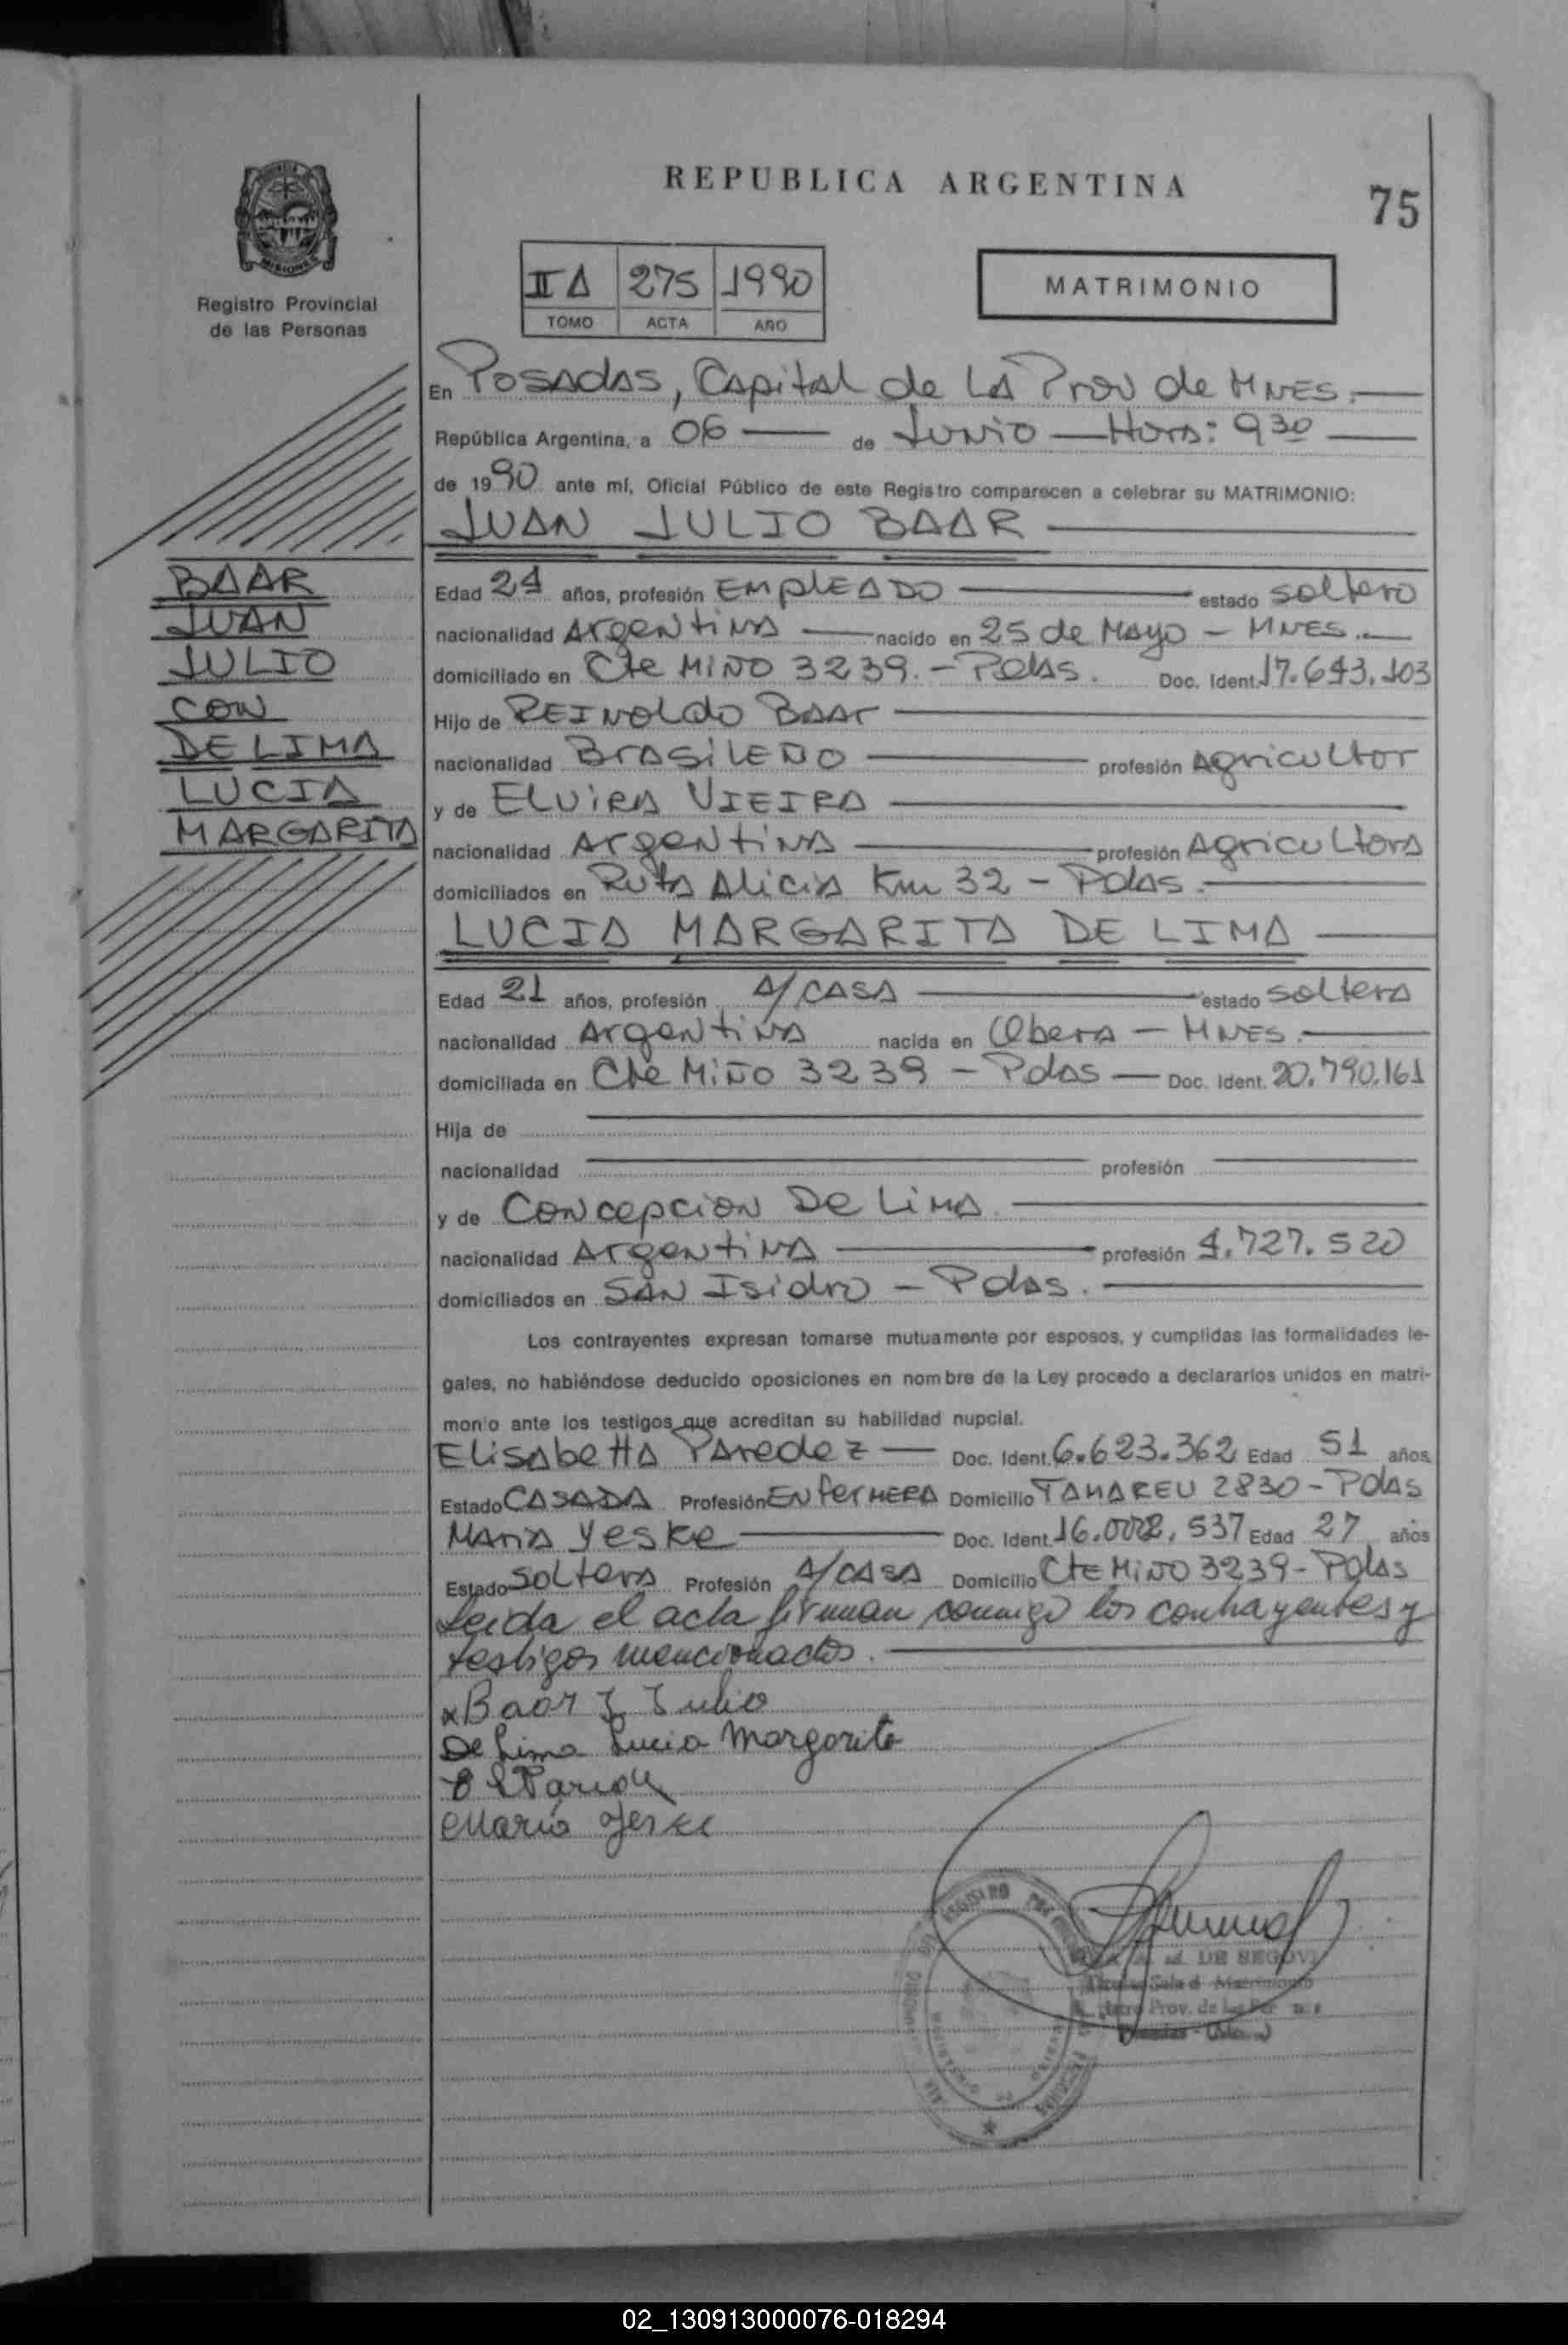 REPUBLICA ARGENTINA
75
MISIONES
Registro Provincial
de las Personas
IIA 275 1990
TOMO ACTA AÑO
MATRIMONIO
En Posadas, Capital de la Prov de Mnes.
República Argentina, a 06 de Junio Hors: 9 30
de 1990 ante mí, Oficial Público de este Registro comparecen a celebrar su MATRIMONIO:
JUAN JULIO BAAR
BAAR
JUAN
JULIO
CON
DE LIMA
LUCIA
MARGARITA
Edad 24 años, profesión EmpleADO estado soltero
nacionalidad Argentina nacido en 25 de Mayo - MNES.
domiciliado en Cte Miño 3239.- Pdas. Doc. Ident. 17.643.103
Hijo de REINOLdo BAAr
nacionalidad BrasiLEÑO profesión Agricultor
y de ELVIRA VIEIRA
nacionalidad Argentina profesión Agricultora
domiciliados en Ruta Alicia Km 32 - Pdas.
LUCIA MARGARITA DE LIMA
Edad 21 años, profesión A/CASA estado soltera
nacionalidad Argentina nacida en Obera - MNES.
domiciliada en Cte Miño 3239 - Pdas Doc. Ident. 20.790.161
Hija de
nacionalidad profesión
y de Concepcion De Lima.
nacionalidad Argentina profesión 4.727.520
domiciliados en SAN Isidro - Pdas.
Los contrayentes expresan tomarse mutuamente por esposos, y cumplidas las formalidades le-
gales, no habiéndose deducido oposiciones en nombre de la Ley procedo a declararlos unidos en matri-
monio ante los testigos que acreditan su habilidad nupcial.
Elisabetta Paredez Doc. Ident. 6.623.362 Edad 51 años
Estado CASADA Profesión ENferMERA Domicilio TAMAREU 2830 - Pdas
Maria Yeske Doc. Ident. 16.002.537 Edad 27 años
Estado Soltera Profesión A/CASA Domicilio Cte Miño 3239 - Pdas
Leida el acta firman conmigo los contrayentes y
testigos mencionados.
x Baar J Julio
De Lima Lucia Margarita
Maria Yeske
DE SEGOVI
Prov. de
02_130913000076-018294